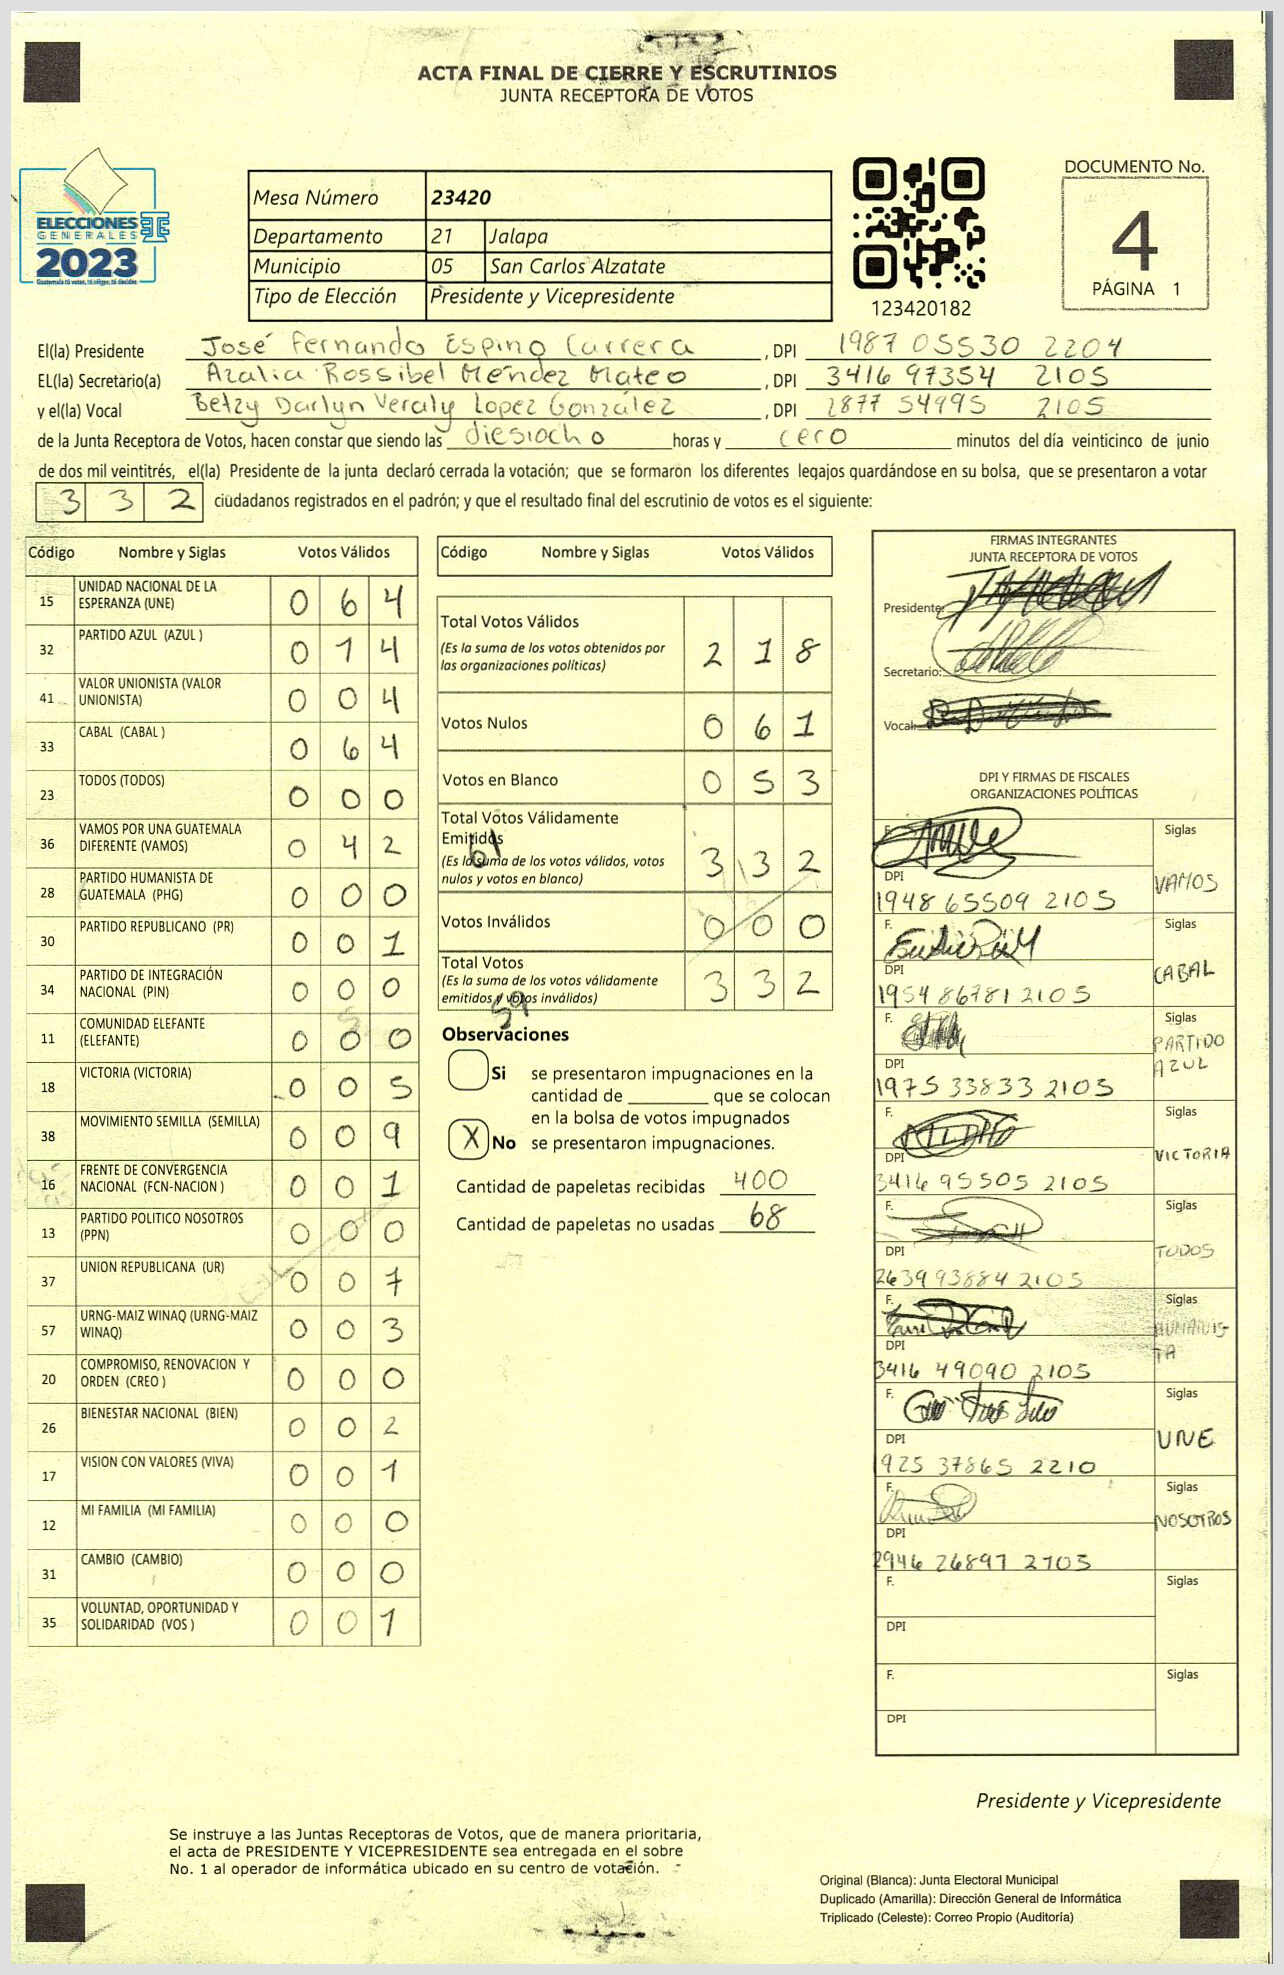 ACTA FINAL DE CIERRE Y ESCRUTINIOS
JUNTA RECEPTORA DE VOTOS
ELECCIONES
GENERALES
2023
Guatemala tú votas, tú eliges, tú decides
Mesa Número 23420
Departamento 21 Jalapa
Municipio 05 San Carlos Alzatate
Tipo de Elección Presidente y Vicepresidente
123420182
DOCUMENTO No.
4
PÁGINA 1
El(la) Presidente José Fernando Espino Carrera , DPI 1987 05530 2204
EL(la) Secretario(a) Azalia Rossibel Méndez Mateo , DPI 3416 97354 2105
y el(la) Vocal Betzy Darlyn Veraly Lopez González , DPI 2877 54995 2105
de la Junta Receptora de Votos, hacen constar que siendo las diesiocho horas y cero minutos del día veinticinco de junio
de dos mil veintitrés, el(la) Presidente de la junta declaró cerrada la votación; que se formaron los diferentes legajos guardándose en su bolsa, que se presentaron a votar
3 3 2 ciudadanos registrados en el padrón; y que el resultado final del escrutinio de votos es el siguiente:
Código Nombre y Siglas Votos Válidos
15 UNIDAD NACIONAL DE LA ESPERANZA (UNE) 0 6 4
32 PARTIDO AZUL (AZUL ) 0 1 4
41 VALOR UNIONISTA (VALOR UNIONISTA) 0 0 4
33 CABAL (CABAL ) 0 6 4
23 TODOS (TODOS) 0 0 0
36 VAMOS POR UNA GUATEMALA DIFERENTE (VAMOS) 0 4 2
28 PARTIDO HUMANISTA DE GUATEMALA (PHG) 0 0 0
30 PARTIDO REPUBLICANO (PR) 0 0 1
34 PARTIDO DE INTEGRACIÓN NACIONAL (PIN) 0 0 0
11 COMUNIDAD ELEFANTE (ELEFANTE) 0 0 0
18 VICTORIA (VICTORIA) 0 0 5
38 MOVIMIENTO SEMILLA (SEMILLA) 0 0 9
16 FRENTE DE CONVERGENCIA NACIONAL (FCN-NACION ) 0 0 1
13 PARTIDO POLITICO NOSOTROS (PPN) 0 0 0
37 UNION REPUBLICANA (UR) 0 0 7
57 URNG-MAIZ WINAQ (URNG-MAIZ WINAQ) 0 0 3
20 COMPROMISO, RENOVACION Y ORDEN (CREO ) 0 0 0
26 BIENESTAR NACIONAL (BIEN) 0 0 2
17 VISION CON VALORES (VIVA) 0 0 1
12 MI FAMILIA (MI FAMILIA) 0 0 0
31 CAMBIO (CAMBIO) 0 0 0
35 VOLUNTAD, OPORTUNIDAD Y SOLIDARIDAD (VOS ) 0 0 1
Código Nombre y Siglas Votos Válidos
Total Votos Válidos 2 1 8
(Es la suma de los votos obtenidos por
las organizaciones políticas)
Votos Nulos 0 6 1
Votos en Blanco 0 5 3
Total Votos Válidamente
Emitidos 61
(Es la suma de los votos válidos, votos
nulos y votos en blanco) 3 3 2
Votos Inválidos 0 0 0
Total Votos
(Es la suma de los votos válidamente
emitidos y votos inválidos) 3 3 2
59
Observaciones
Si se presentaron impugnaciones en la
cantidad de ________ que se colocan
en la bolsa de votos impugnados
X No se presentaron impugnaciones.
Cantidad de papeletas recibidas 400
Cantidad de papeletas no usadas 68
FIRMAS INTEGRANTES
JUNTA RECEPTORA DE VOTOS
Presidente:
Secretario:
Vocal:
DPI Y FIRMAS DE FISCALES
ORGANIZACIONES POLÍTICAS
F. Siglas
DPI VAMOS
1948 65509 2105
F. Siglas
DPI CABAL
1954 86781 2105
F. Siglas
DPI PARTIDO AZUL
1975 33833 2105
F. Siglas
DPI VICTORIA
3416 95505 2105
F. Siglas
DPI TODOS
2639 93884 2105
F. Siglas
DPI HUMANIS-
TA
3416 49090 2105
F. Siglas
DPI UNE
1925 37865 2210
F. Siglas
DPI NOSOTROS
2946 26897 2105
F. Siglas
DPI
F. Siglas
DPI
Presidente y Vicepresidente
Se instruye a las Juntas Receptoras de Votos, que de manera prioritaria,
el acta de PRESIDENTE Y VICEPRESIDENTE sea entregada en el sobre
No. 1 al operador de informática ubicado en su centro de votación.
Original (Blanca): Junta Electoral Municipal
Duplicado (Amarilla): Dirección General de Informática
Triplicado (Celeste): Correo Propio (Auditoría)